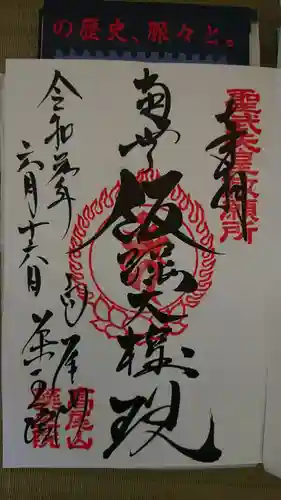 の歴史、脈々と。
聖武天皇敕願所
奉拝
南無飯縄大権現
高尾山薬王院
令和元年六月十六日
高尾山